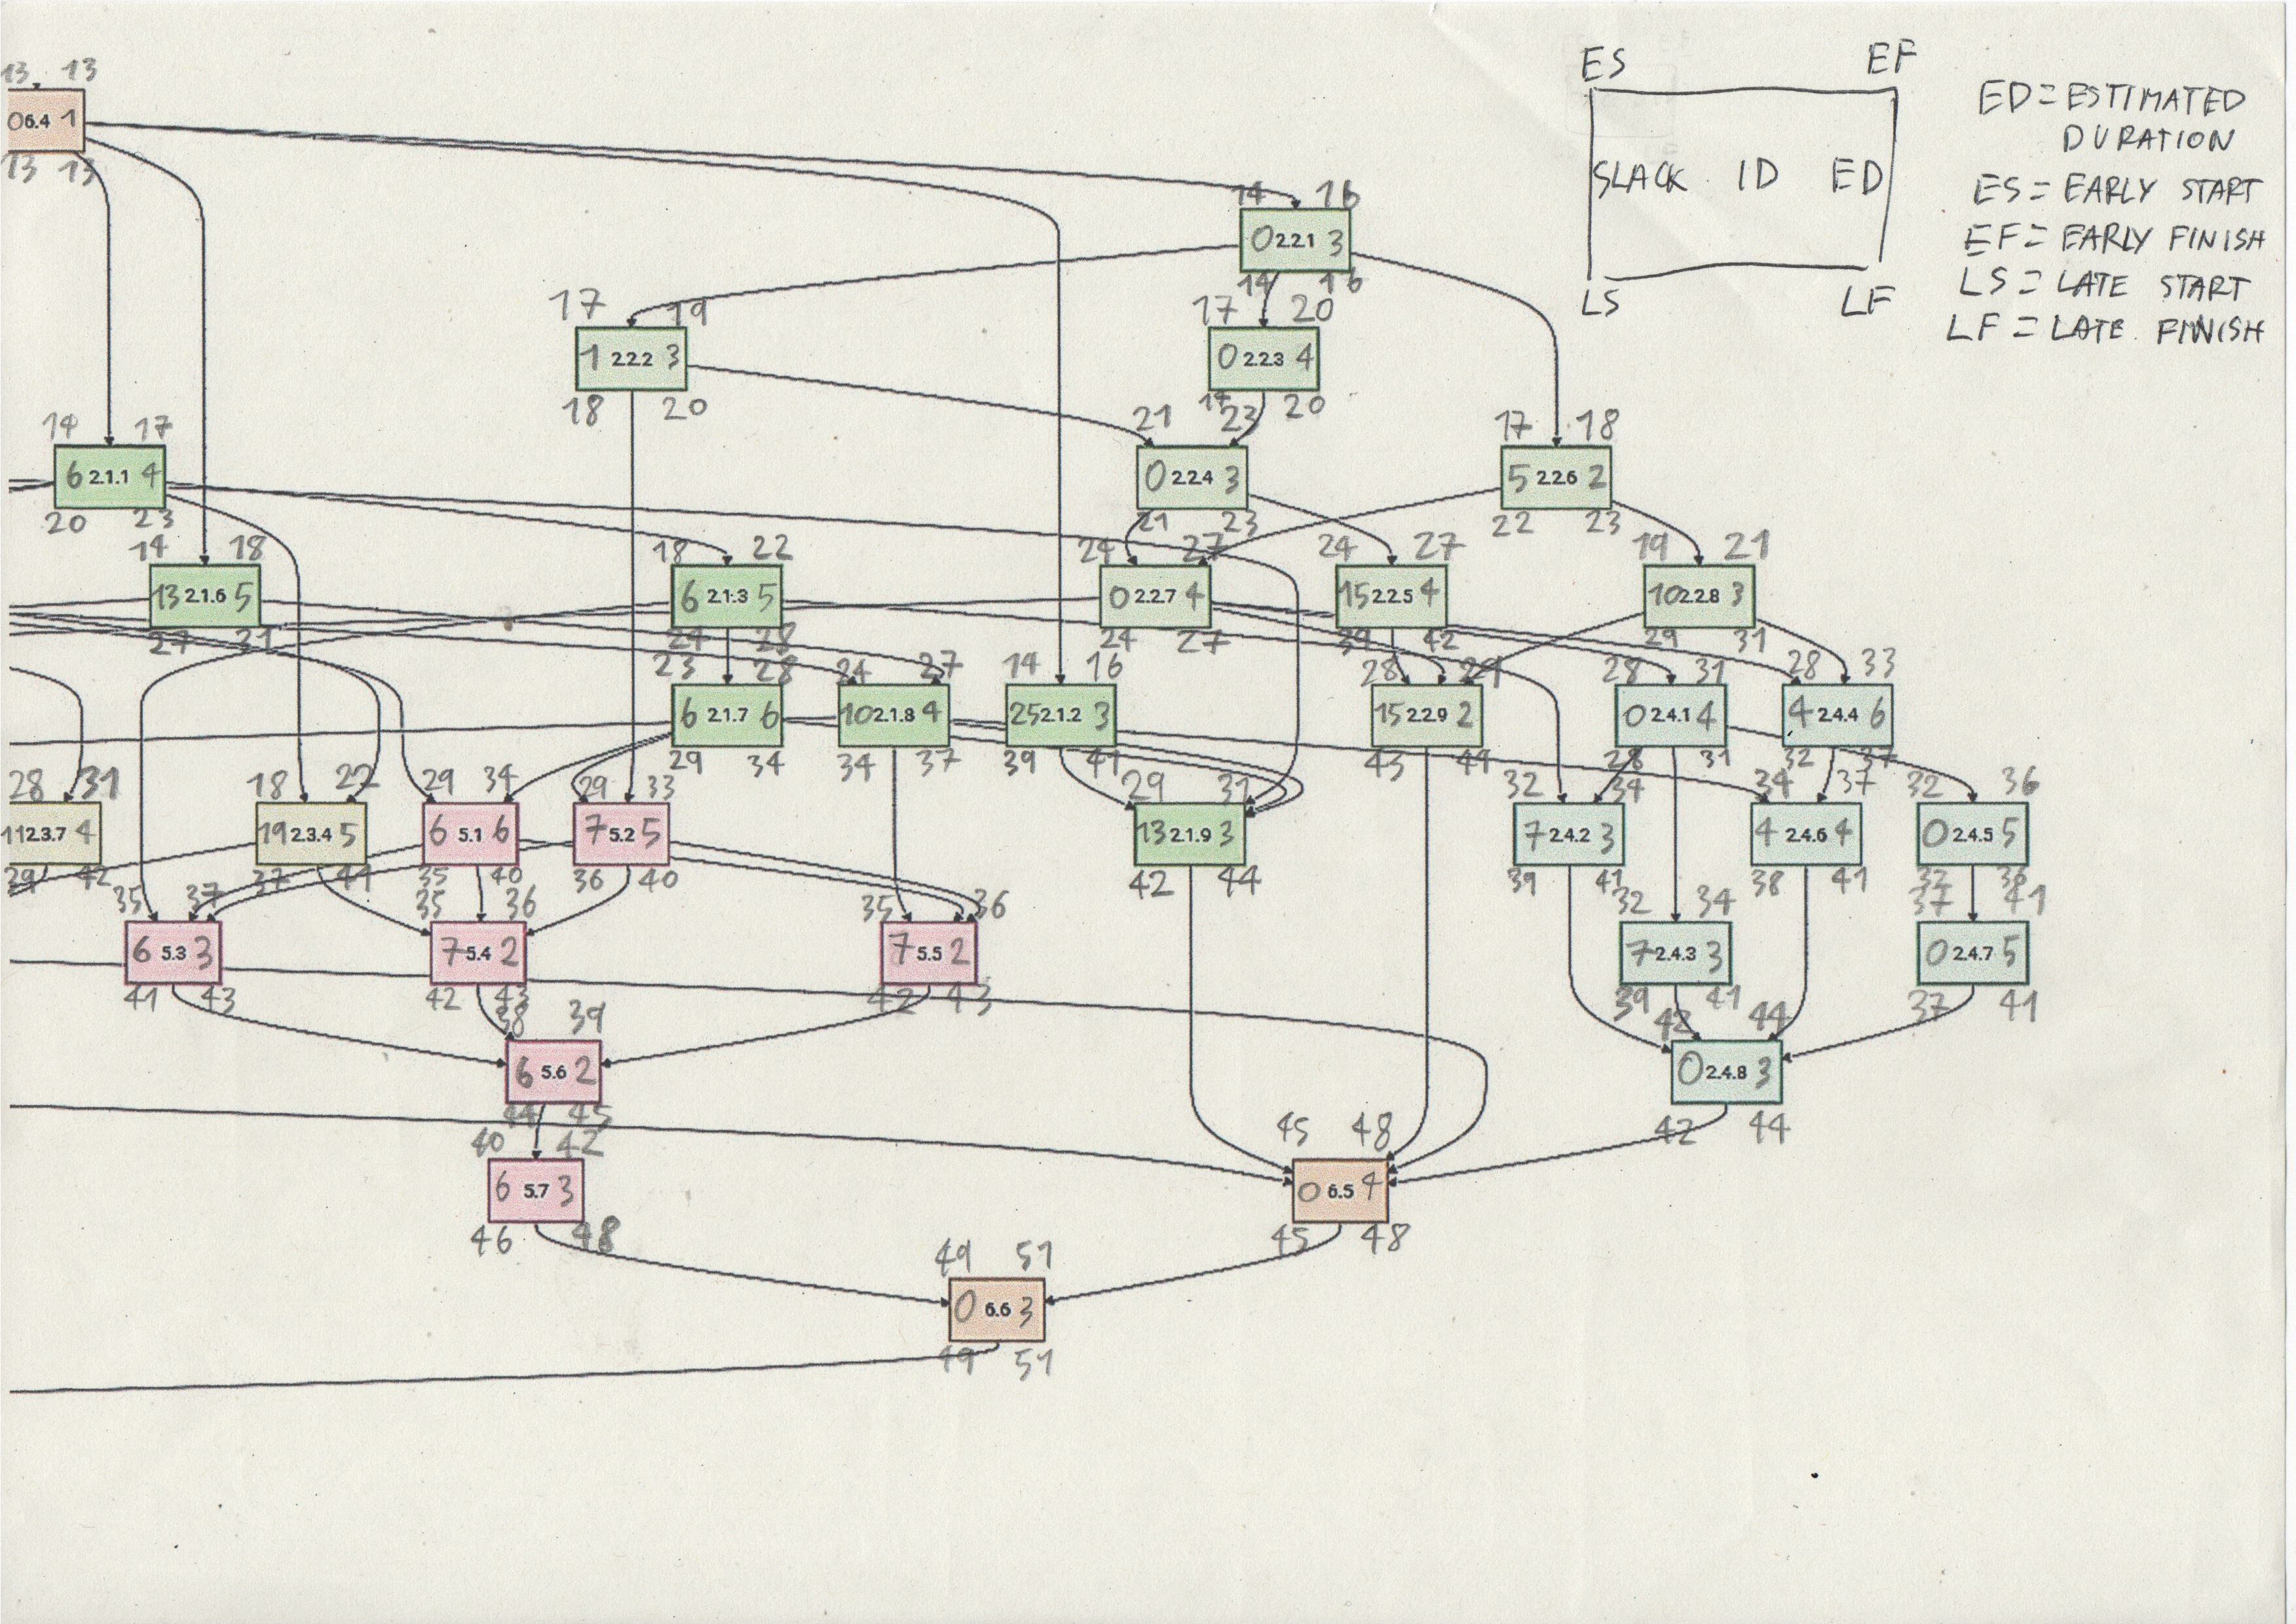 ES EF
SLACK ID ED
LS LF
ED = ESTIMATED
DURATION
ES = EARLY START
EF = EARLY FINISH
LS = LATE START
LF = LATE FINISH
13 13
0 6.4 1
13 13
14 16
0 2.2.1 3
14 16
17 19
1 2.2.2 3
18 20
17 20
0 2.2.3 4
17 20
14 17
6 2.1.1 4
20 23
21 23
0 2.2.4 3
21 23
17 18
5 2.2.6 2
22 23
14 18
13 2.1.6 5
27 31
18 22
6 2.1.3 5
24 28
24 27
0 2.2.7 4
24 27
24 27
15 2.2.5 4
39 42
19 21
10 2.2.8 3
29 31
23 28
6 2.1.7 6
29 34
24 27
10 2.1.8 4
34 37
14 16
25 2.1.2 3
39 41
28 29
15 2.2.9 2
43 44
28 31
0 2.4.1 4
28 31
28 33
4 2.4.4 6
32 37
28 31
11 2.3.7 4
39 42
18 22
19 2.3.4 5
37 41
29 34
6 5.1 6
35 40
29 33
7 5.2 5
36 40
29 31
13 2.1.9 3
42 44
32 34
7 2.4.2 3
39 41
34 37
4 2.4.6 4
38 41
32 36
0 2.4.5 5
32 36
35 37
6 5.3 3
41 43
35 36
7 5.4 2
42 43
35 36
7 5.5 2
42 43
32 34
7 2.4.3 3
39 41
37 41
0 2.4.7 5
37 41
38 39
6 5.6 2
44 45
42 44
0 2.4.8 3
42 44
40 42
6 5.7 3
46 48
45 48
0 6.5 4
45 48
49 51
0 6.6 3
49 51